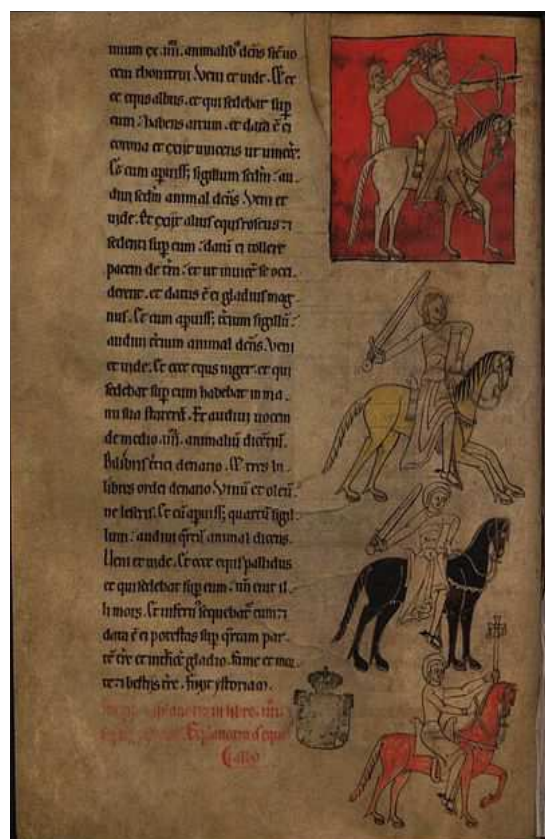 num ex .iiii. animalib' dens sic uo
cem thonitrui Veni et uide. Et ec
ce equs albus. et qui sedebat sup
eum : habens arcum. et data ē ei
corona et exiit uincens ut uinceret.
Et cum apuiss; sigillum sedm : au
diui sedm animal dēns. Veni et
uide. Et exiit alius equs roseus : 
sedenti sup eum : datū ē ei tollere
pacem de terra : et ut inuicē se occi
derent. et datus ē ei gladius mag
nus. Et cum apuiss; tercium sigillū :
audiui tercium animal dēns. Veni
et uide. Et ecce equs niger. et qui
sedebat sup eum habebat in ma
nu sua staterā. Et audiui uocem
de medio .iiii. animaliū dicentiū.
Bilibris tritici denario. Et tres bi
libres ordei denario. Vinū et oleū
ne leseris. Et cū apuiss; quartū sigil
lum : audiui quarti animal dicens.
Veni et uide. Et ecce equs pallidus
et qui sedebat sup eum : nom erat il
li mors. Et infern' sequebat eum :
data ē ei potestas sup quartam par
tē tre et interficere gladio. fame et mor
te et bestiis tre. finit ystoriam.
Explanatio de equo
albo